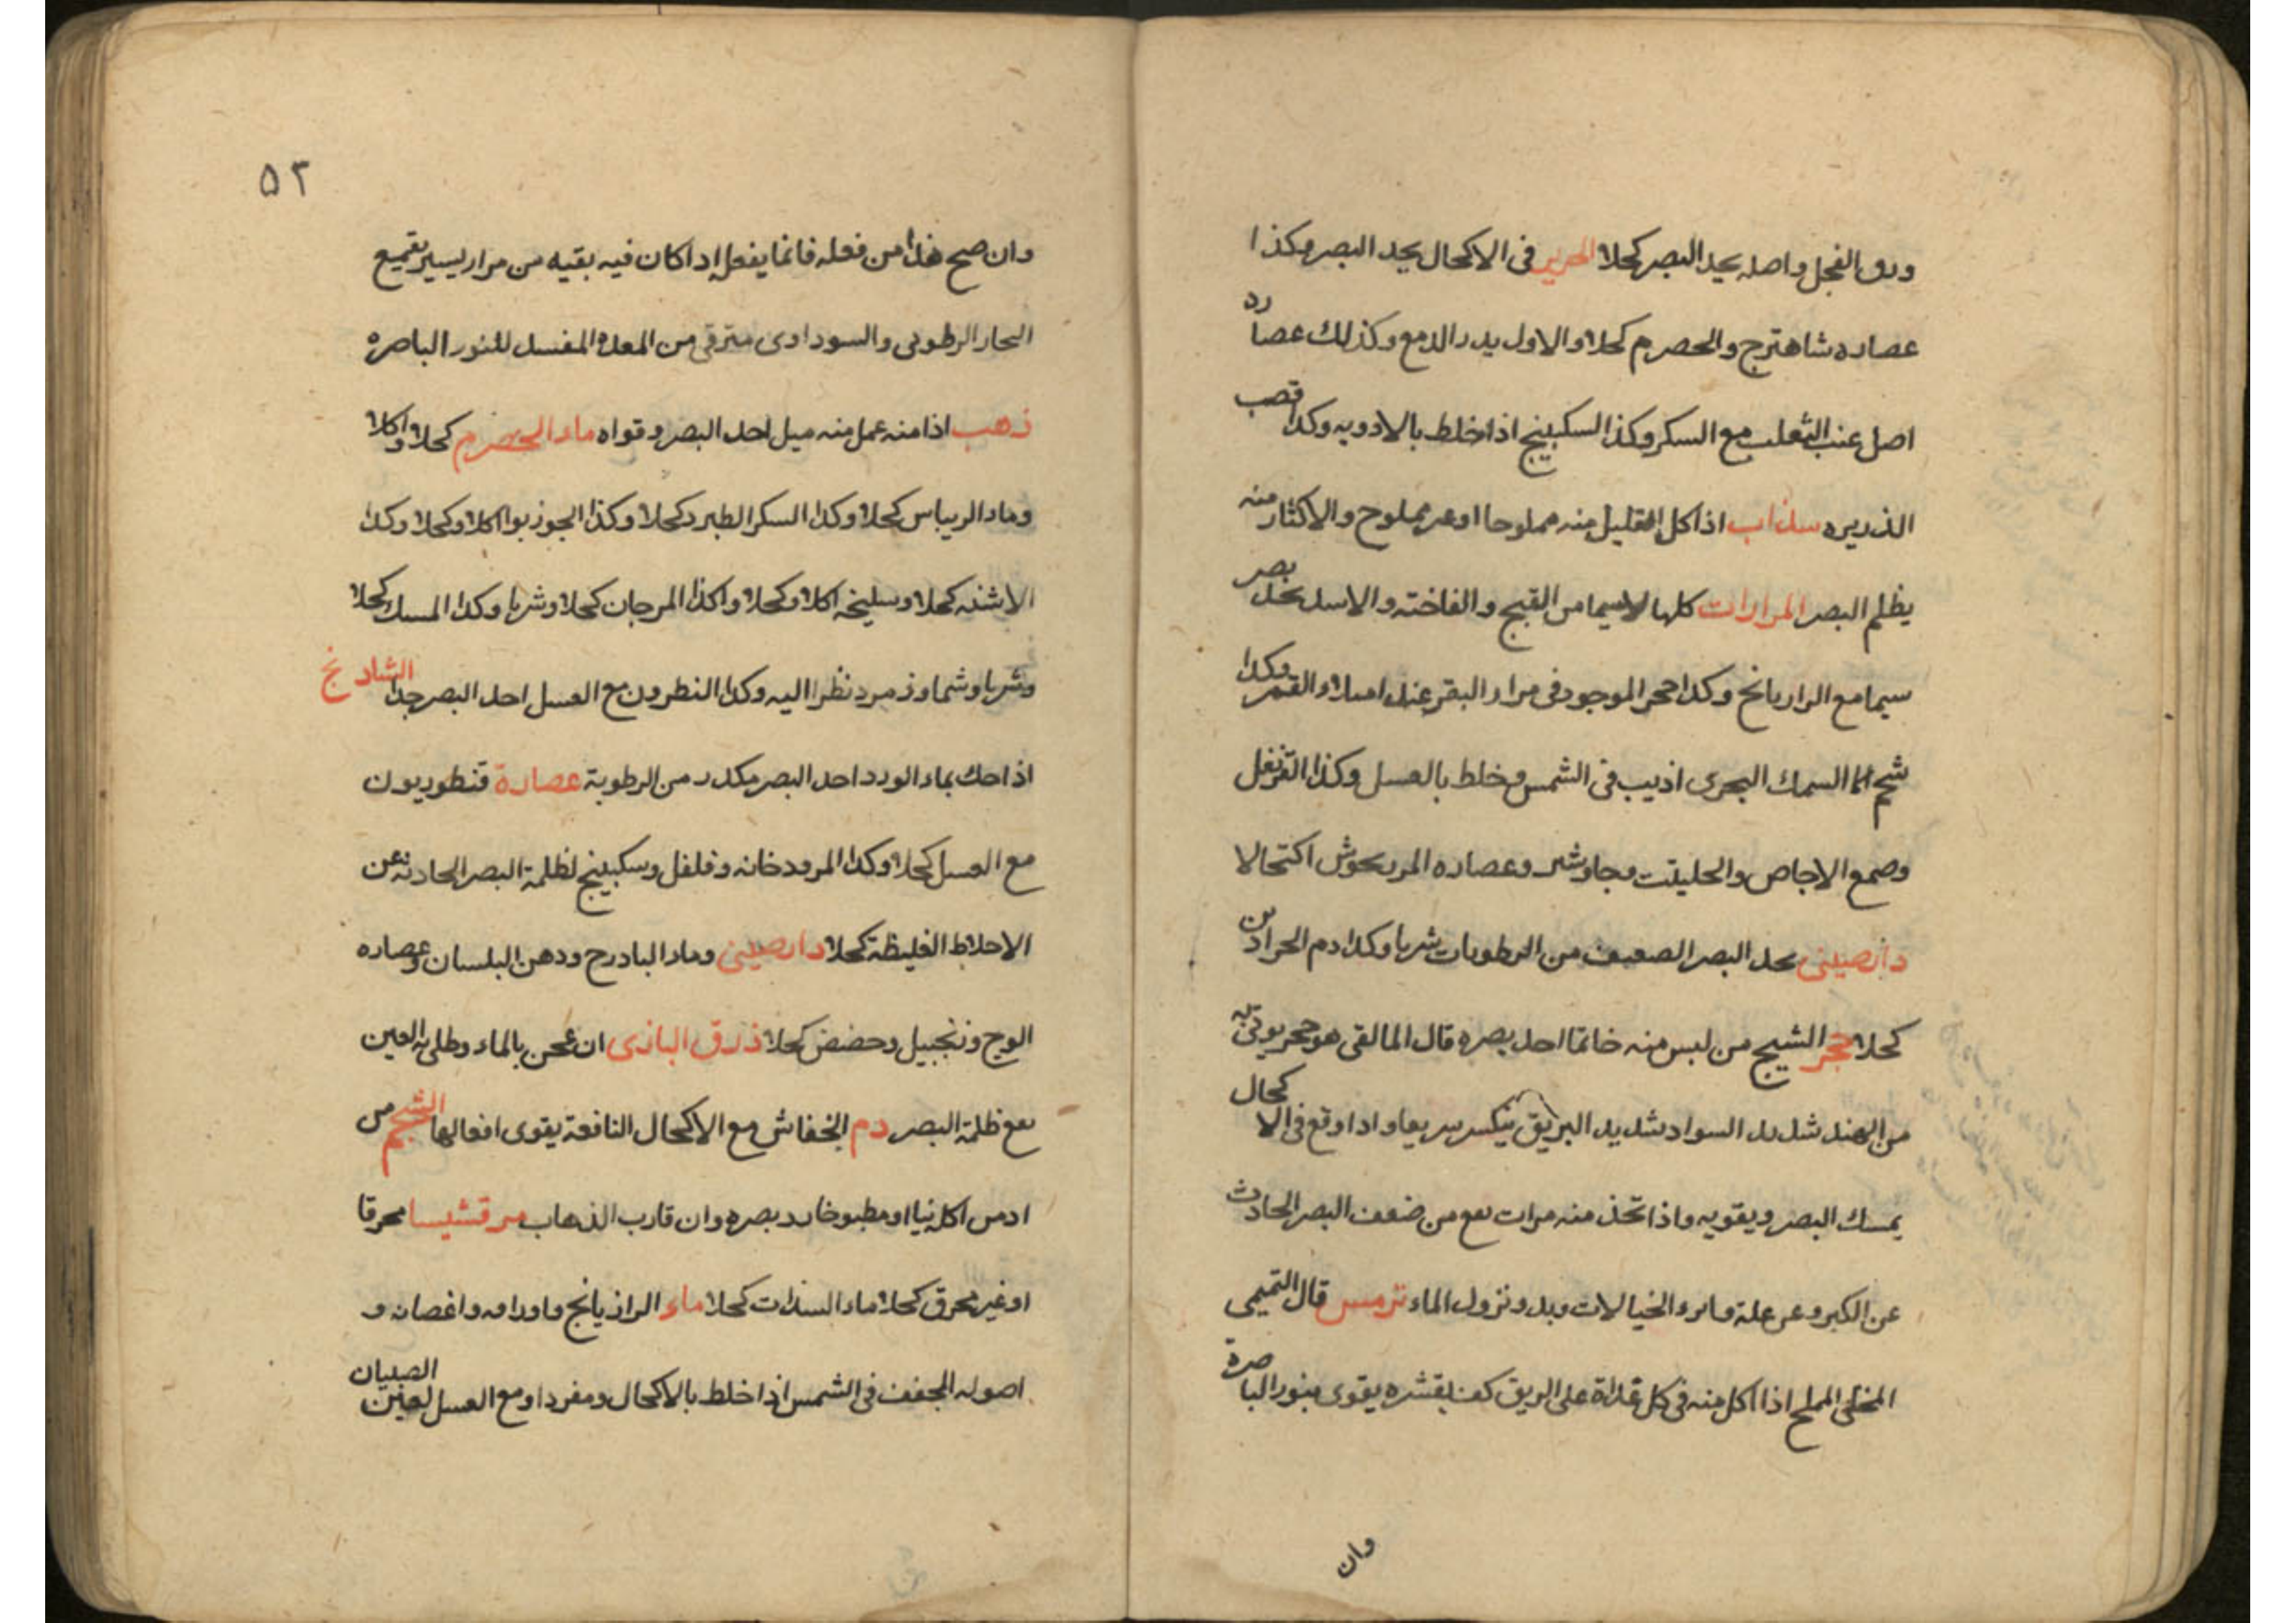 ورق الفجل واصله يحد البصر كحلا الحرير فى الاكحال يحد البصر وكذا
عصاره شاهترج والحصرم كحلا والاول يدر الدمع وكذلك عصارد
اصل عنب الثعلب مع السكر وكذا السكبينج اذا خلط بالادويه وكذا قصب
الذريره سذاب اذا كل القليل منه مملوحا او غير مملوح والاكثار منه
يظلم البصر المرارات كلها لا سيما من القبج والفاخته والاسد يحد بصر
سيما مع الرازيانج وكذا حجر الموجود فى مرار البقر عند امتلاء القمر وكذا
شحم السمك البحرى اذيب فى الشمس وخلط بالعسل وكذا القرنفل
وصمغ الاجاص والحليتت وجاوشير وعصاره المرنجوش اكتحالا
دارصينى يحد البصر الضعيف من الرطوبات شربا وكذا دم الحرادين
كحلا حجر الشبج من لبس منه خاتما احد بصره قال المالقى هو حجر يوتى به
من الهند شديد السواد شديد البريق ينكسر سريعا واذا وقع فى الاكحال
يمسك البصر ويقويه واذا تخذ منه مرات نفع من ضعف البصر الحادث
عن الكبر وعن علة وابرء الخيالات وبدو نزول الماء ترمس قال التميمى
المحلى المملح اذا اكل منه فى كل غداة على الريق كف بقشره يقوى بنور الباصرة
وان
۵۲
وان صح هذا من فعله فانما يفعل اذا كان فيه بقيه من مرار يسير بقميع
البحار الرطوبى والسوداوى مترقى من المعدة المفسد للنور الباصره
ذهب اذا منه عمل منه ميل احد البصر وقواه ماء الحصرم كحلا واكلا
وماء الريباس كحلا وكذا السكر الطبرد كحلا وكذا الجوز بوا اكلا وكحلا وكذا
الاشنه كحلا وسليخه اكلا وكحلا واكذا المرجان كحلا وشربا وكذا المسك كحلا
وشربا وشما وزمرد نظرا اليه وكذا النطرون مع العسل احد البصر جدا الشادنج
اذا حك بماء الورد احد البصر مكدر من الرطوبة عصارة قنطوريون
مع العسل كحلا وكذا المرودخانه وفلفل وسكبينج لظلمة البصر الحادثه عن
الاخلاط الغليظة كحلا دارصينى وماء البادرج ودهن البلسان وعصاره
الوج وزنجبيل وحضض كحلا ذرق البازى ان عجن بالماء وطلى به العين
نفع ظلمة البصر دم الخفاش مع الاكحال النافعة يقوى افعالها الشلجم من
ادمن اكله نيا او مطبوخا رد بصره وان قارب الذهاب مرقشيسا محرقا
او غير محرق كحلا ماء السذاب كحلا ماء الرازيانج واوراقه واغصانه و
اصوله المجفف فى الشمس اذا خلط بالاكحال ومفردا ومع العسل لعين الصبيان